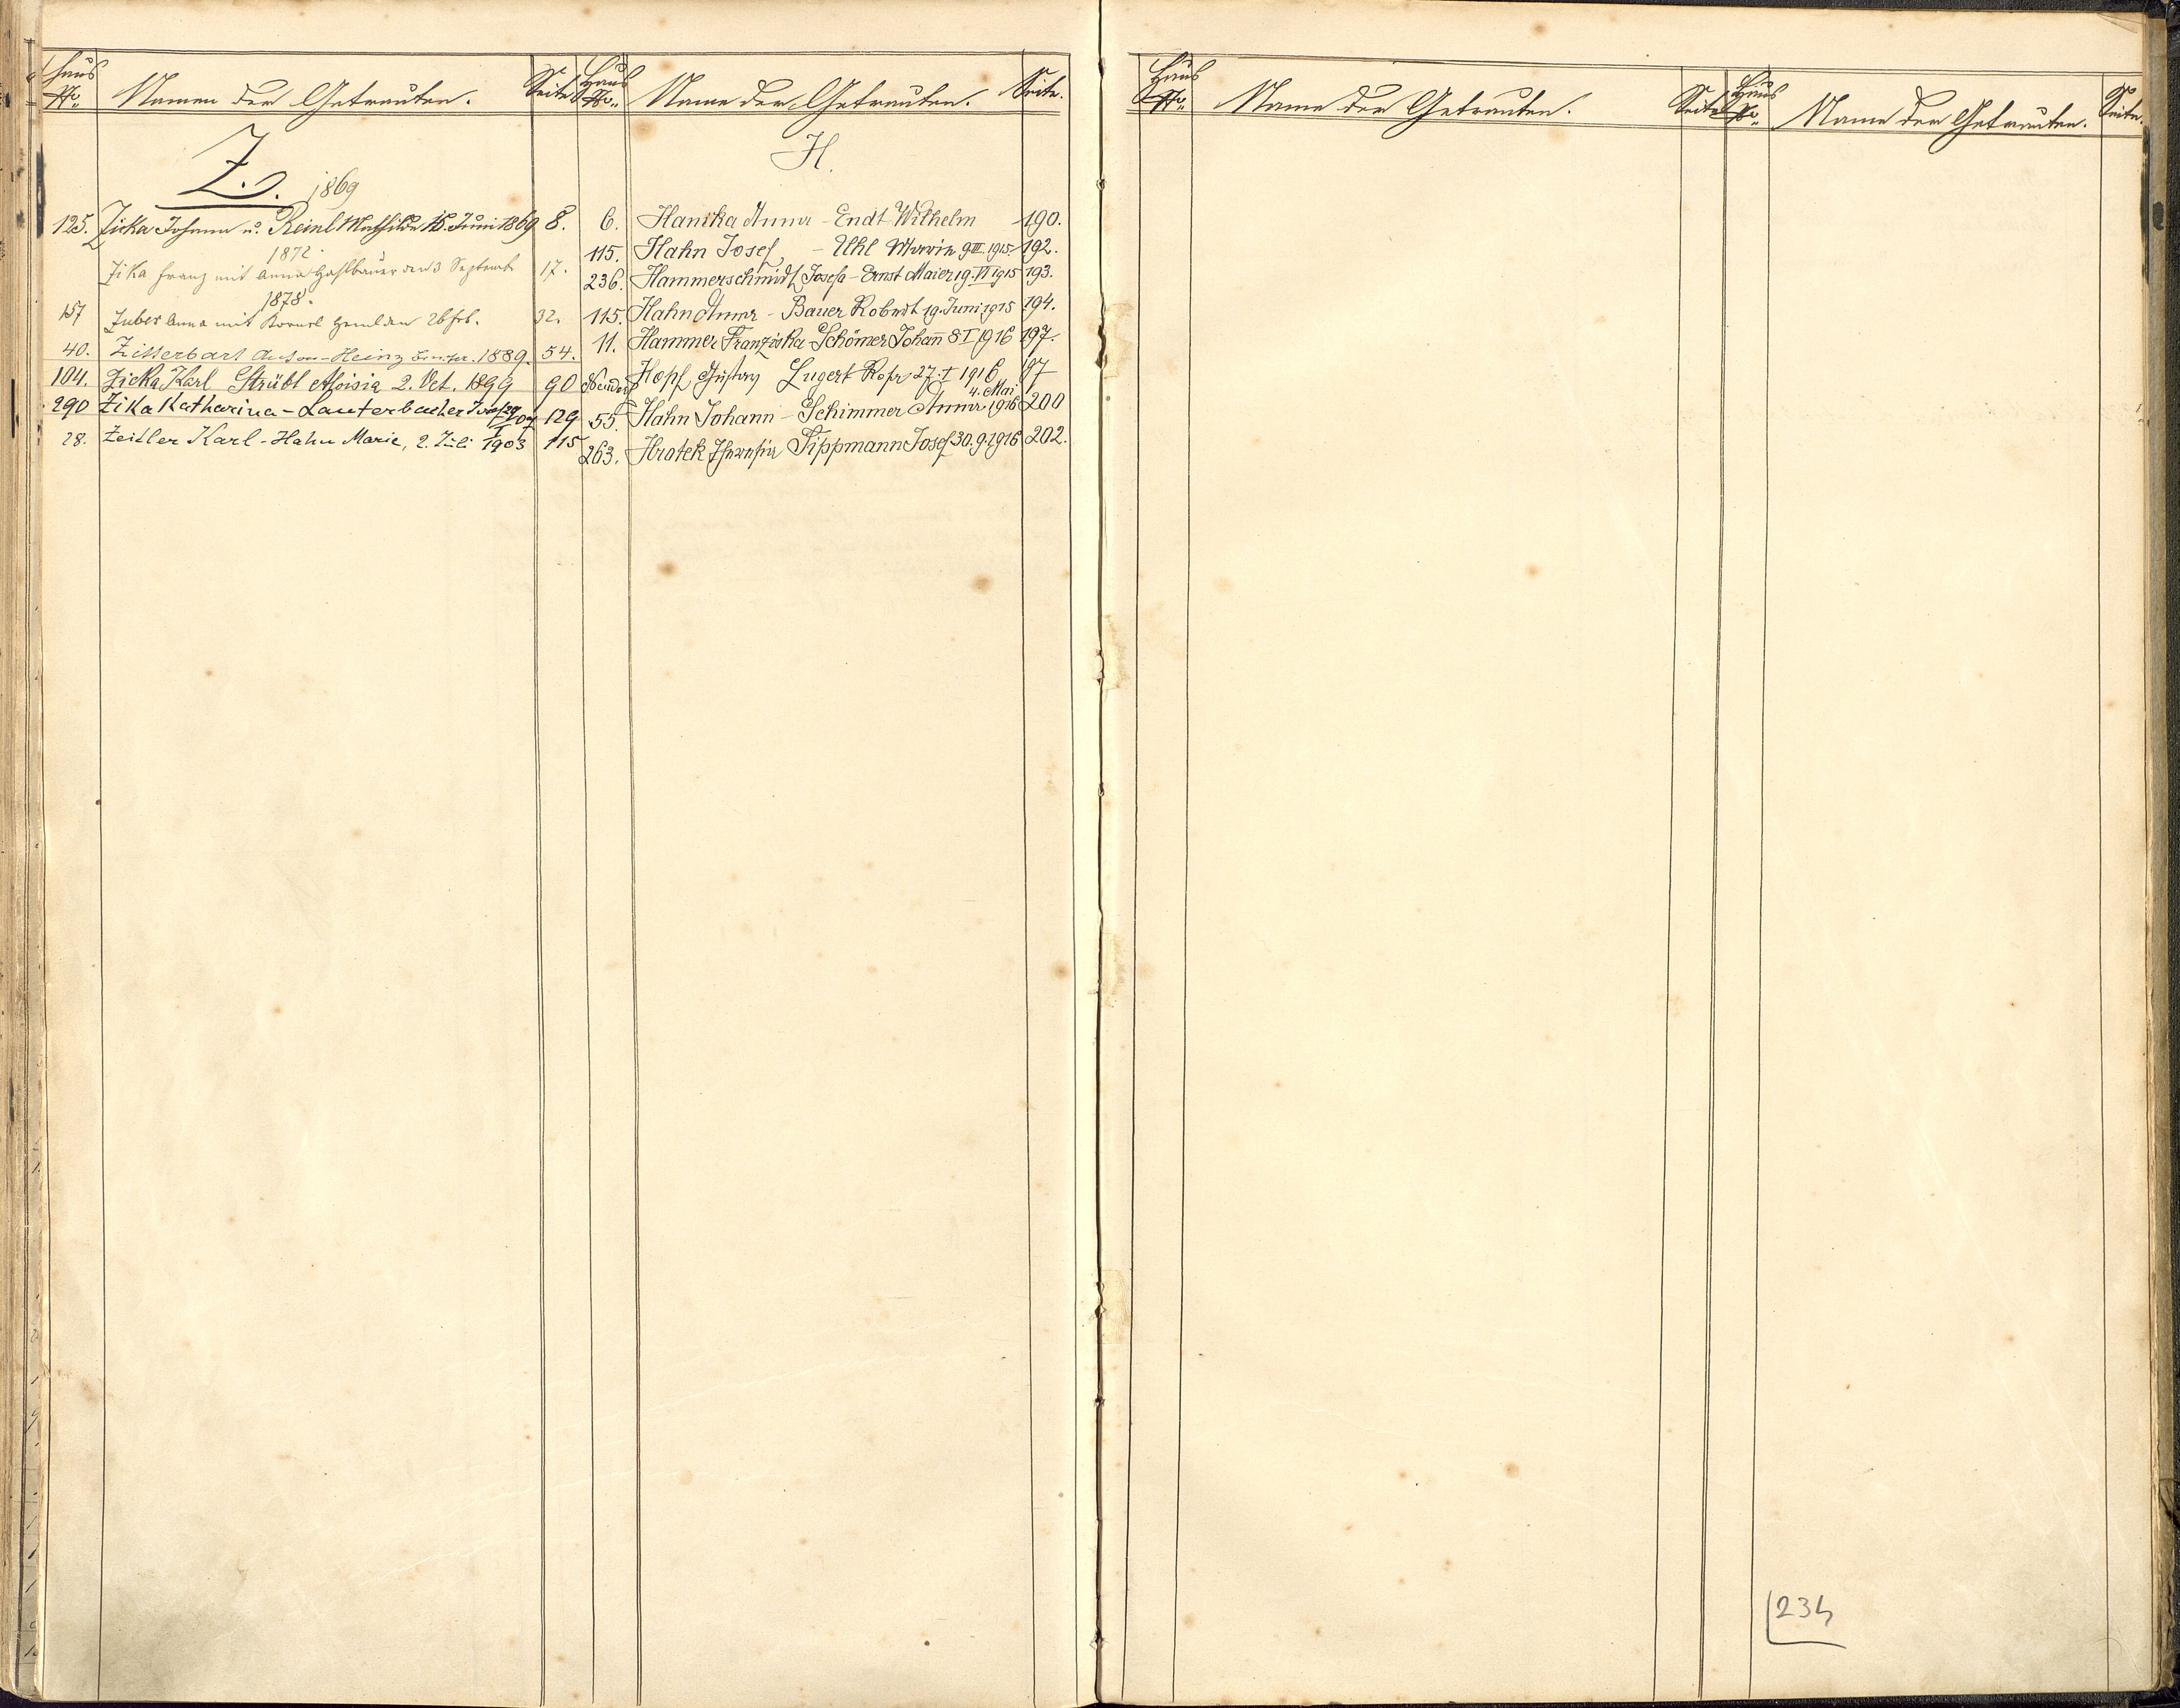 Haus No. Namen der Getrauten. Seite
Z. 1869
125. Zicka Johann u. Reinl Mathilde 16. Juni 1869 8.
1872
Zika Franz mit Anna den 3 Septemb 17.
1878.
157 Zuber Anna mit den 26 Feb. 32.
40. Zitterbart Anton - Heinz 1889. 54.
104. Zicka Karl Strübl Aloisia 2. Oct. 1899 90
290 Zika Katharina - Lauterbacher Josef 129
28. Zeitler Karl - Hahn Marie, 2. Juli 1903 115
Haus No. Name der Getrauten. Seite.
H.
6. Hanika Anna - Endt Wilhelm 190.
115. Hahn Josef - Uhl Maria 9.III.1915. 192.
236. Hammerschmidt Josefa - Ernst Maier 19.VI 1915 193.
115. Hahn Anna - Bauer Robert 19. Juni 1915 194.
11. Hammer Franziska - Schömer Johan̄ 8.I 1916 197.
Neudorf Hopf Gustav Lugert Rosa 27.I 1916 197
4. Mai
55. Hahn Johann - Schimmer Anna 1916 200
263. Hratek Theresia Tippmann Josef 30.9.1916 202.
Haus No. Name der Getrauten. Seite
Haus No. Name der Getrauten. Seite.
234